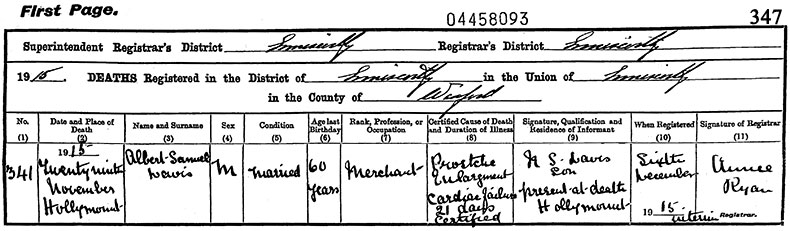 First Page.
04458093
347
Superintendent Registrar's District Enniscorthy Registrar's District Enniscorthy
1915. DEATHS Registered in the District of Enniscorthy in the Union of Enniscorthy
in the County of Wexford
No. (1)
Date and Place of Death (2)
Name and Surname (3)
Sex (4)
Condition (5)
Age last Birthday (6)
Rank, Profession, or Occupation (7)
Certified Cause of Death and Duration of Illness (8)
Signature, Qualification and Residence of Informant (9)
When Registered (10)
Signature of Registrar (11)
341
1915
Twenty ninth
November
Hollymount
Albert Samuel
Davis
M
Married
60
Years
Merchant
Prostate
Enlargment
Cardiac failure
21 days
Certified
S. Davis
Son
present at death
Hollymount
Sixth
December
1915
Annee
Ryan
interim Registrar.